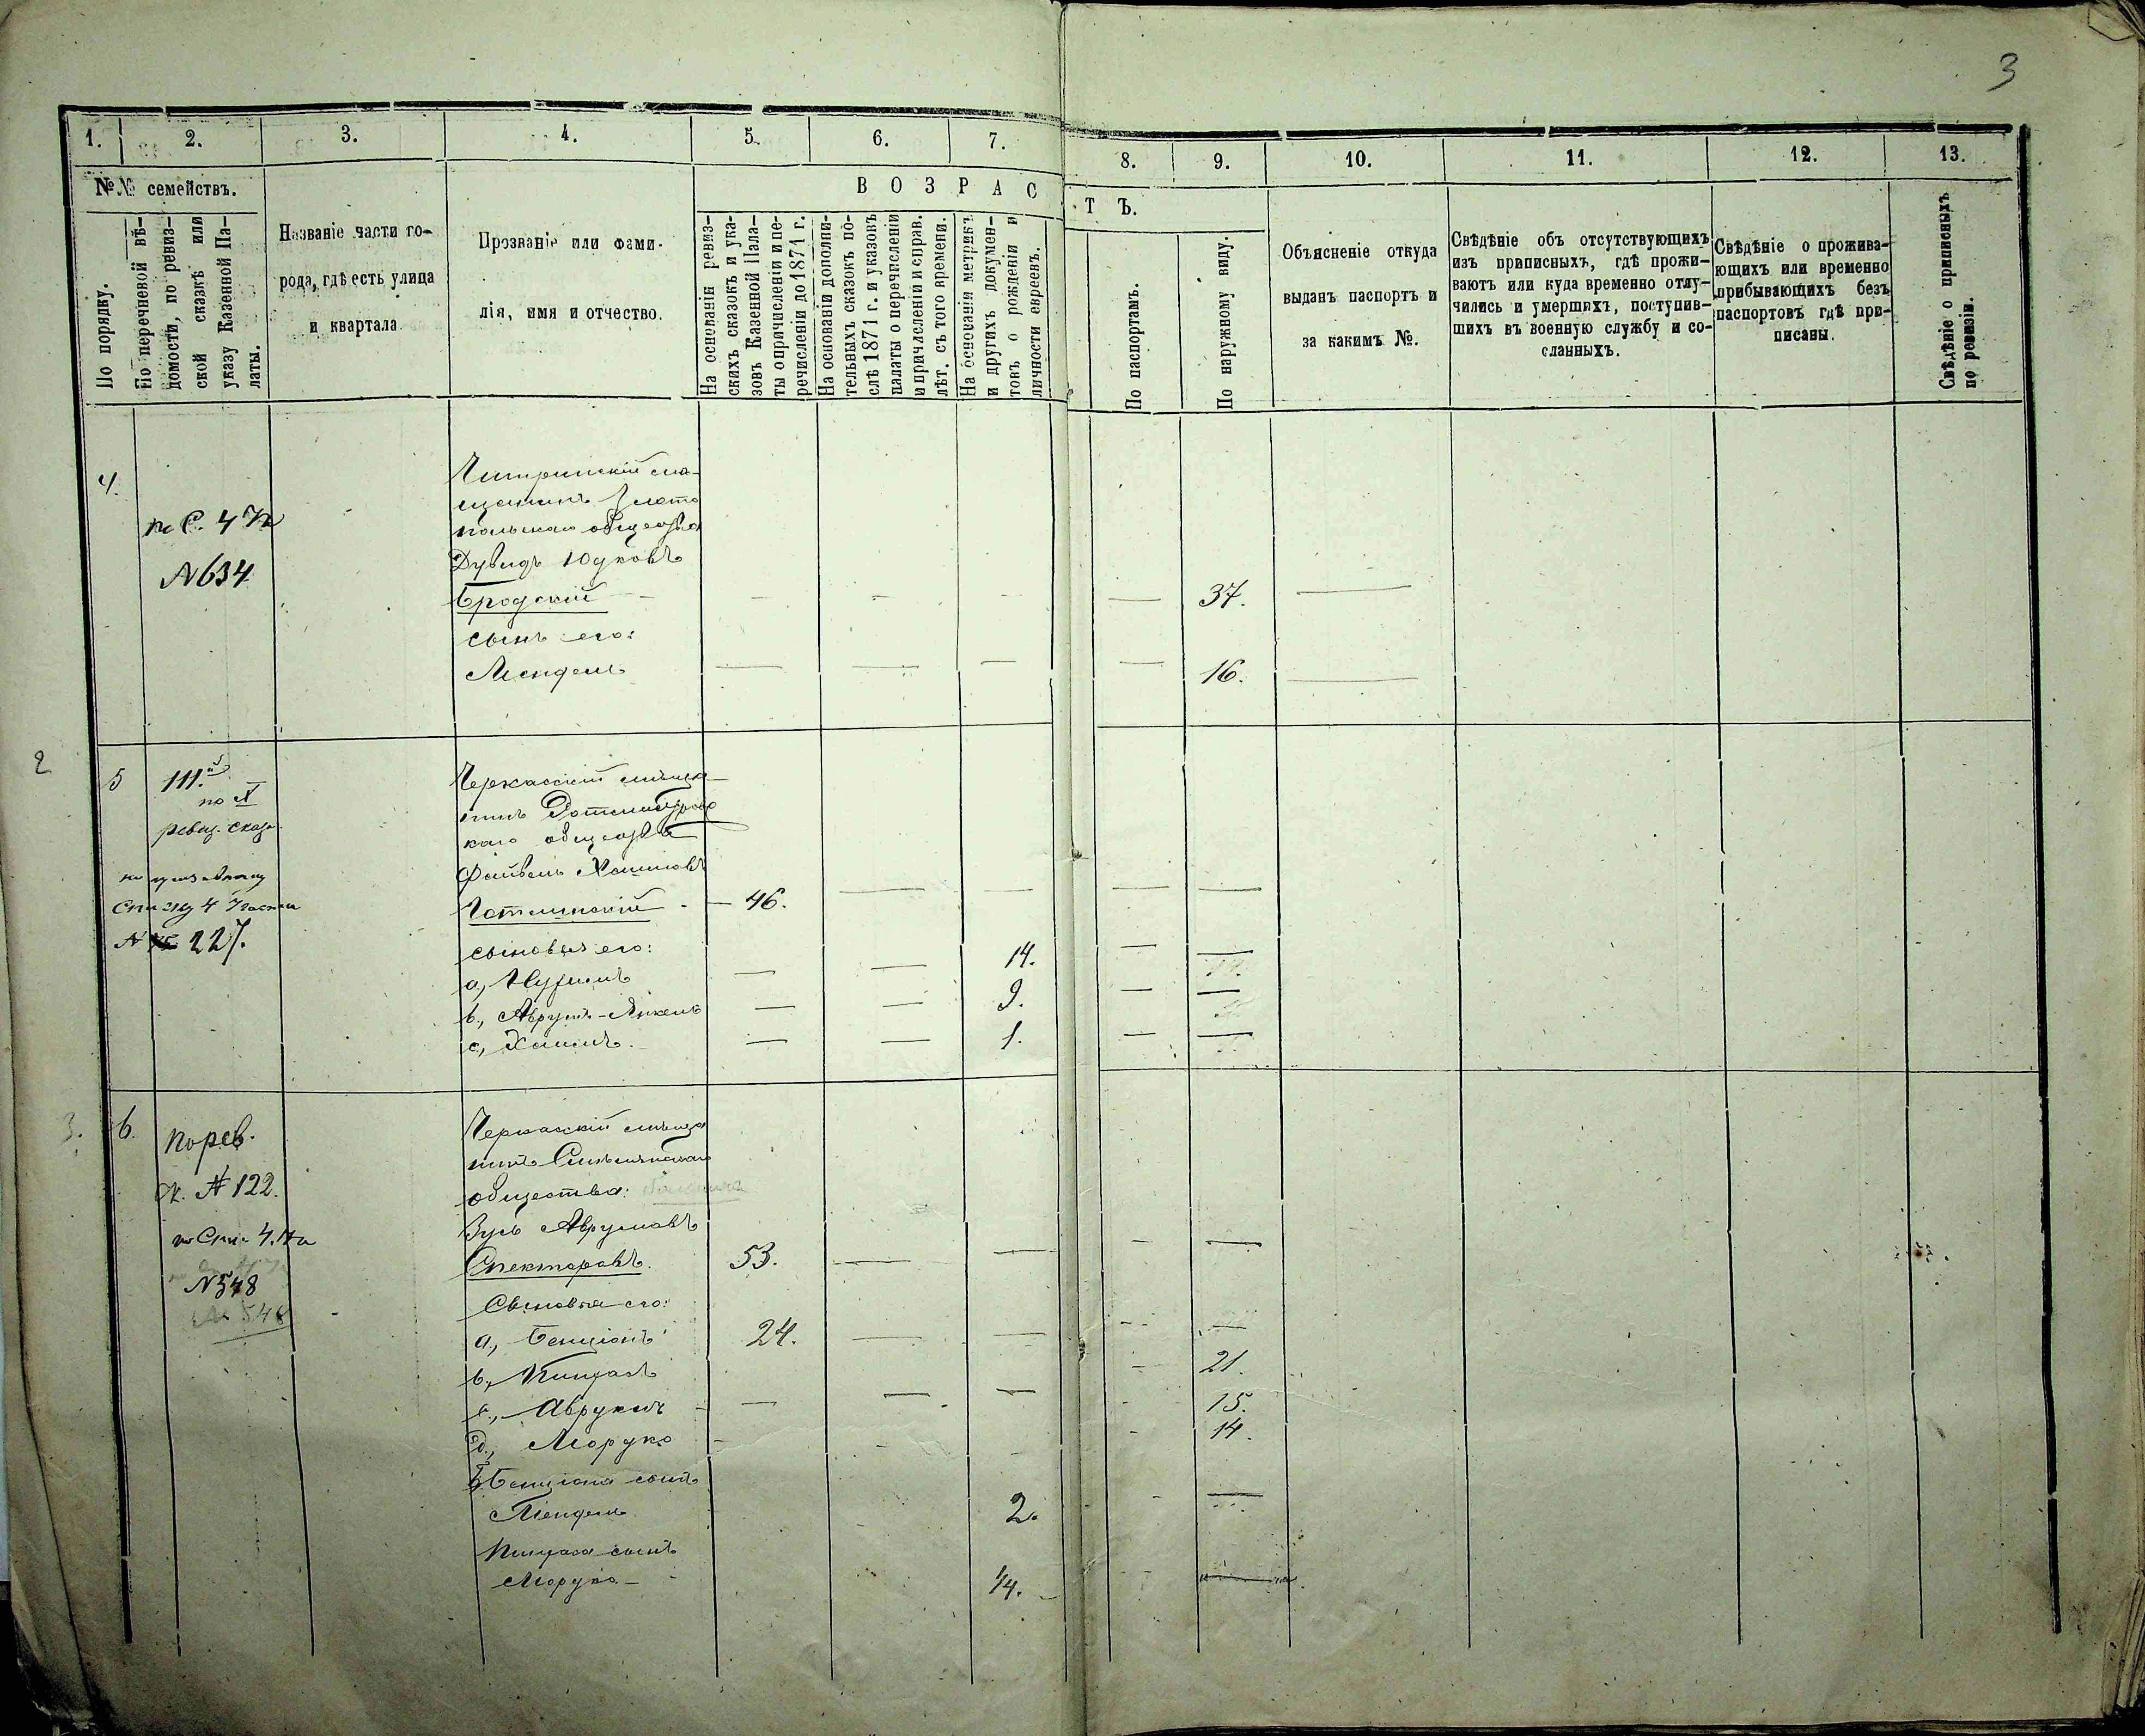 3
1. 2. 3. 4. 5. 6. 7. 8. 9. 10. 11. 12. 13.
№№ семействъ.
По порядку.
По перечневой вѣ-
домости, по ревиз-
ской сказкѣ или
указу Казенной Па-
латы.
Названіе части го-
рода, гдѣ есть улица
и квартала
Прозваніе или фами-
лія, имя и отчество.
ВОЗРАСТЪ.
На основаніи ревиз-
скихъ сказокъ и ука-
зовъ Казенной Пала-
ты о причисленіи и пе-
речисленіи до 1871 г.
На основаніи дополни-
тельныхъ сказокъ по-
слѣ 1871 г. и указовъ
палаты о перечисленіи
и причисленіи и справ.
лѣт. съ того времени.
На основаніи метрикъ
и другихъ докумен-
товъ о рожденіи и
личности евреевъ.
По паспортамъ.
По наружному виду.
Объясненіе откуда
выданъ паспортъ и
за какимъ №.
Свѣдѣніе объ отсутствующихъ
изъ приписныхъ, гдѣ прожи-
ваютъ или куда временно отлу-
чились и умершихъ, поступив-
шихъ въ военную службу и со-
сланныхъ.
Свѣдѣніе о прожива-
ющихъ или временно
прибывающихъ безъ
паспортовъ гдѣ при-
писаны.
Свѣдѣніе о приписныхъ
по ревизіи.
4.
по С. 4 Ч
N 634
Чигиринскій мѣ-
щанинъ Злато
польскаго общества
Дувидъ Юдковъ
Бродскій — — — — — 37. —
сынъ его:
Мендель — — — — 16. —
2
5
111.
по N
ревиз. сказ.
Списку 4 Части
N 227.
Черкасскій мѣща-
нинъ Ротмистров
каго общества
Файвель Хаимовъ
— 46. — — — —
сыновья его:
а, Нухимъ — — 14. — —
b, Аврумъ-Янкель — — 9. — —
с, Хаимъ. — — 1. — —
3.
6.
по рев.
ск. N 122.
по Спи. 4. Ча
N 548
N 548
Черкасскій мѣща
нинъ Смѣлянскаго
общества:
Зусь Аврумовъ
Спекторовъ. 53. — — — —
Сыновья его:
а, Бенціонъ 24. — — — —
b, Пинхасъ — 21.
с, Аврумъ — — — — 15.
d, Мордко — — — — 14.
Бенціона сынъ
Мендель 2. — —
Пинхаса сынъ
Мордко — 1/4. — —